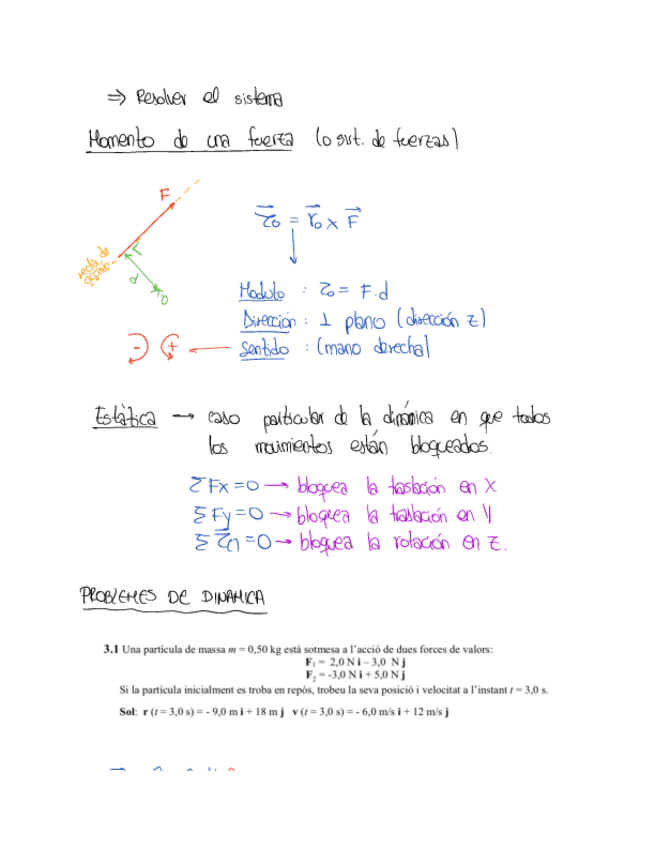 ⇒ Resolver el sistema
Momento de una fuerza (o sist. de fuerzas)
F
recta de acción
d
O
τ⃗o = r⃗o x F⃗
Modulo : τo = F.d
Dirección : ⊥ plano (dirección z)
Sentido : (mano derecha)
- +
Estàtica → caso particular de la dinámica en que todos
los movimientos están bloqueados.
ΣFx = 0 → bloquea la traslación en X
ΣFy = 0 → bloquea la traslación en Y
Στ⃗ = 0 → bloquea la rotación en z.
PROBLEMES DE DINAMICA
3.1 Una partícula de massa m = 0,50 kg està sotmesa a l'acció de dues forces de valors:
F₁ = 2,0 N i – 3,0 N j
F₂ = -3,0 N i + 5,0 N j
Si la partícula inicialment es troba en repòs, trobeu la seva posició i velocitat a l'instant t = 3,0 s.
Sol: r (t = 3,0 s) = - 9,0 m i + 18 m j v (t = 3,0 s) = - 6,0 m/s i + 12 m/s j